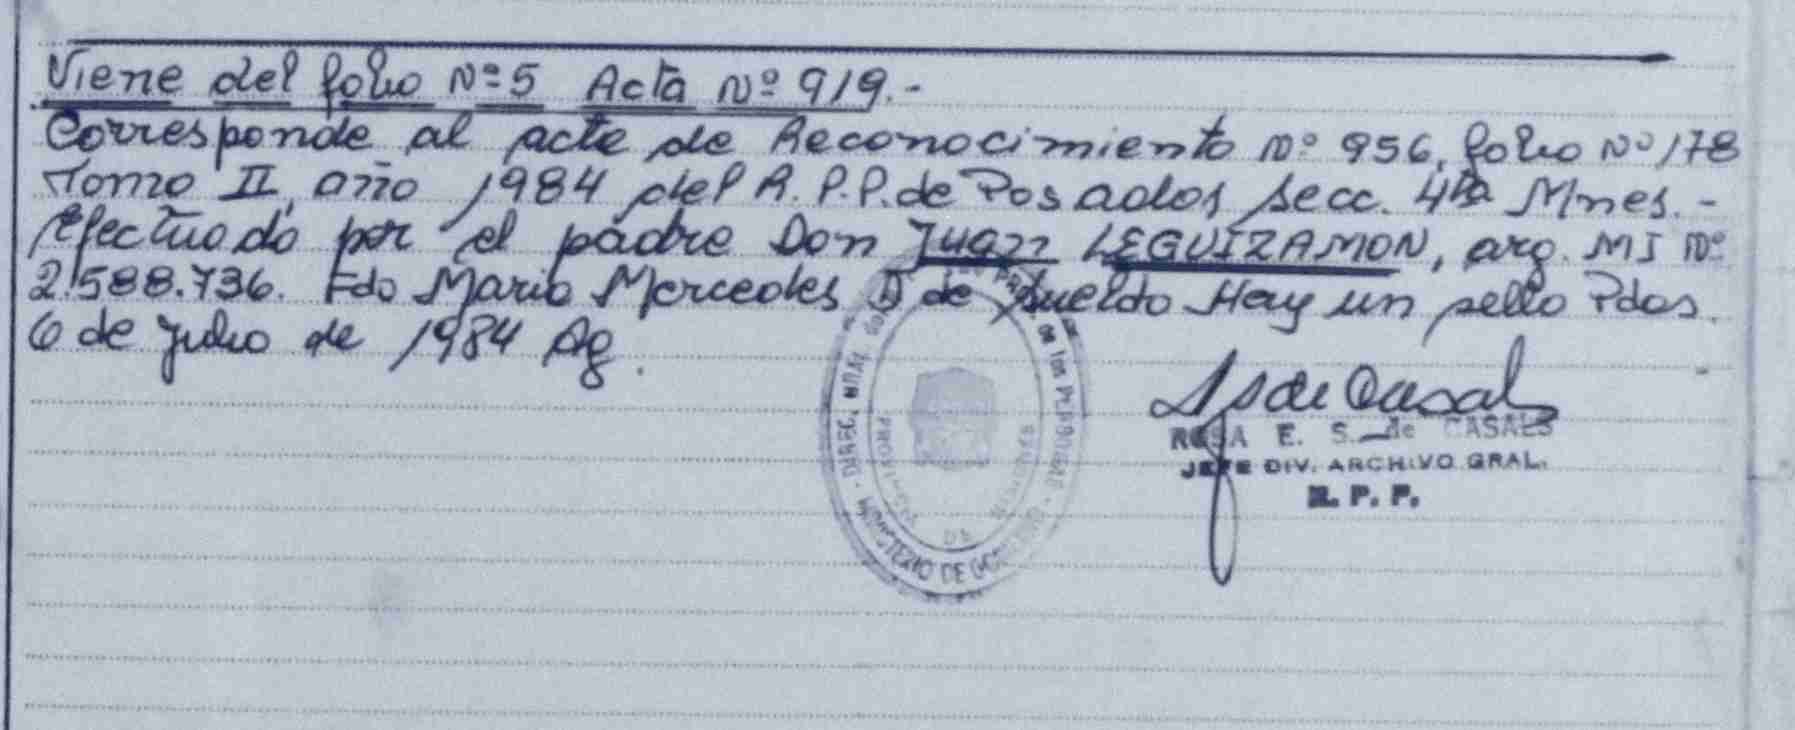 Viene del folio Nº 5 Acta Nº 919.-
Corresponde al acta de Reconocimiento Nº 956, folio Nº 178
Tomo II, año 1984 del R.P.P. de Posadas secc. 4ta Mnes.-
efectuado por el padre Don Juan LEGUIZAMON, arg. MI Nº
2.588.736. Fdo Maria Mercedes D de Sueldo Hay un sello Pdas.
6 de julio de 1984 Ag.
ROSA E. S. de CASALS
JEFE DIV. ARCHIVO GRAL.
R. P. P.
MINISTERIO DE GOBIERNO - DIREC. GRAL. de las Personas
PROVINCIA DE MISIONES